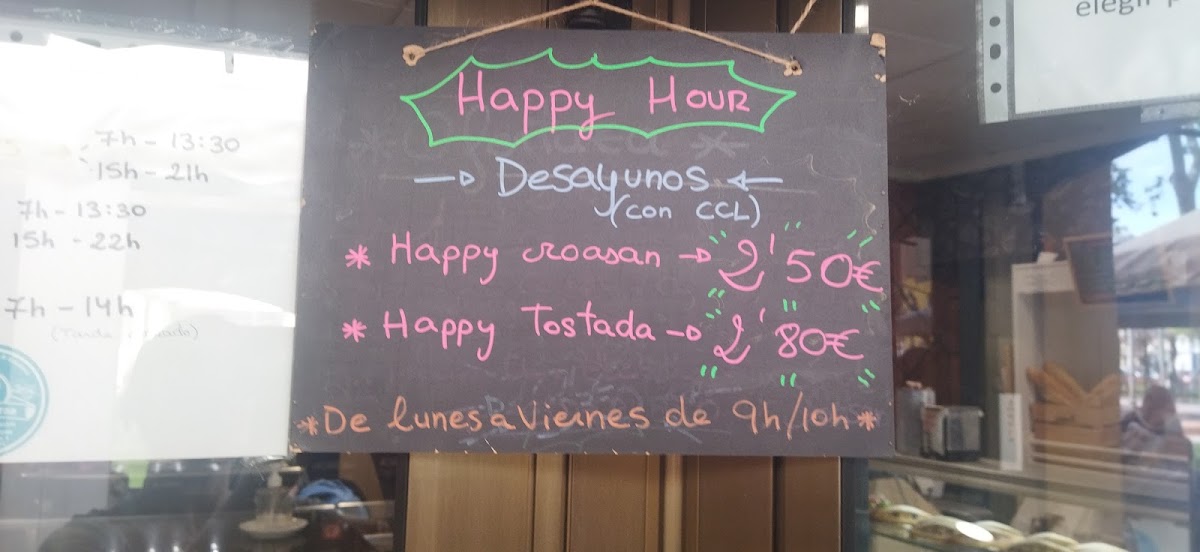 Happy Hour
Desayunos
(con CCL)
* Happy croasan → 2'50€
* Happy Tostada → 2'80€
*De lunes a Viernes de 9h/10h*
7h - 13:30
15h - 21h
7h - 13:30
15h - 22h
7h - 14h
elegir